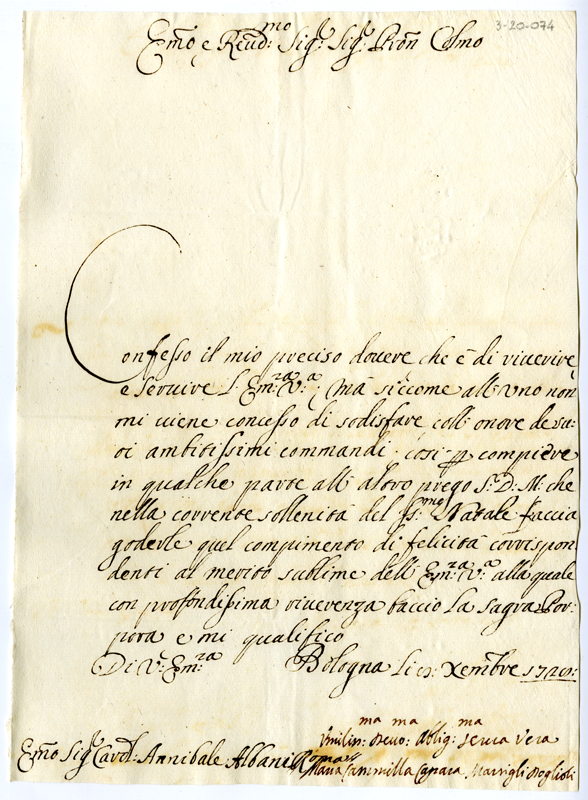 3-20-074
Em̃o e Reud:mo Sig:r Sig:r Pron Colmo
Confesso il mio preciso douere che è di riuerire,
e seruire l'Em:za V:a; mà siccome all' uno non
mi uiene concesso di sodisfare coll' onore de su:
oi ambitissimi commandi; così p compiere
in qualche parte all' altro prego S: D: M: che
nella corrente sollenità del Ss:mo Natale faccia
goderle quel compimento di felicità corrispon
denti al merito sublime dell' Em:za V:a alla quale
con profondissima riuerenza baccio la sagra Por:
pora e mi qualifico
Di V:a Em:za Bologna li Xembre 1720:
Vmilis:ma Deuo:ma Oblig:ma Serua Vera
Em̃o Sig:r Card: Annibale Albani Roma
Maria Cammilla Caprara Marsigli